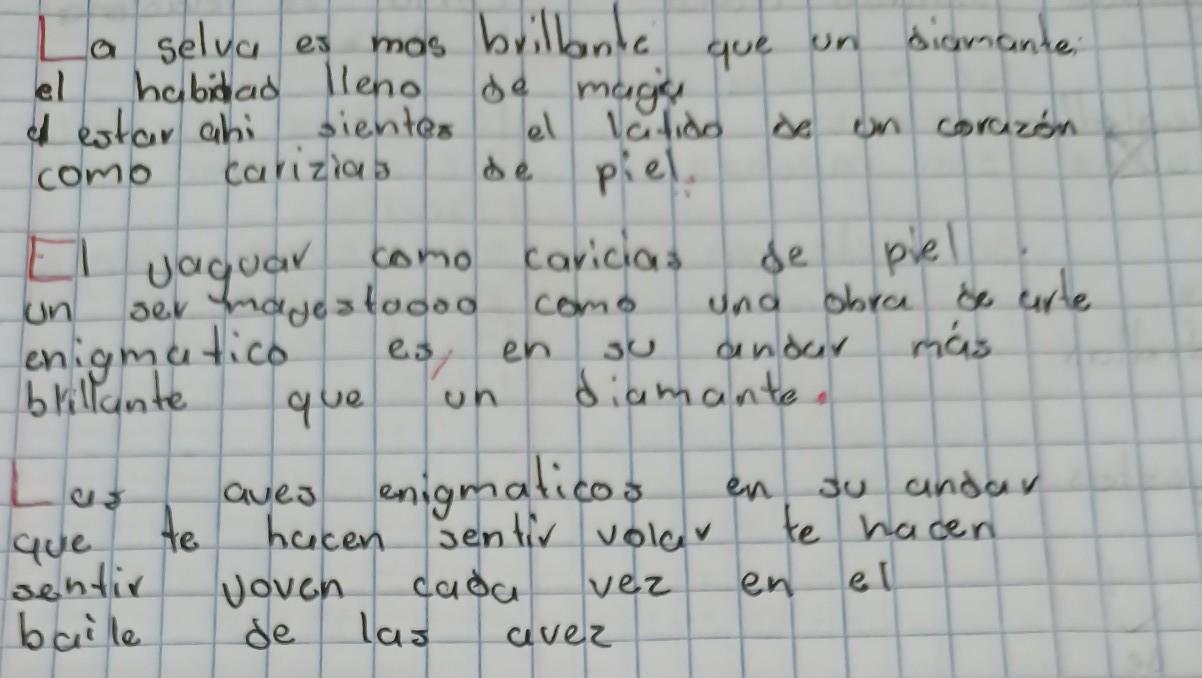 La selva es mas brillante que un diamante.
el habidad lleno de magia
el estar ahi sientes el latido de un corazón
como carizias de piel.
El yaguar como caricias de piel.
un ser magestoooo como una obra de arte
enigmatico es, en su andar más
brillante que un diamante.
Las aves enigmaticos en su andar
que te hacen sentir volar te hacen
sentir yoven cada vez en el
baile de las avez